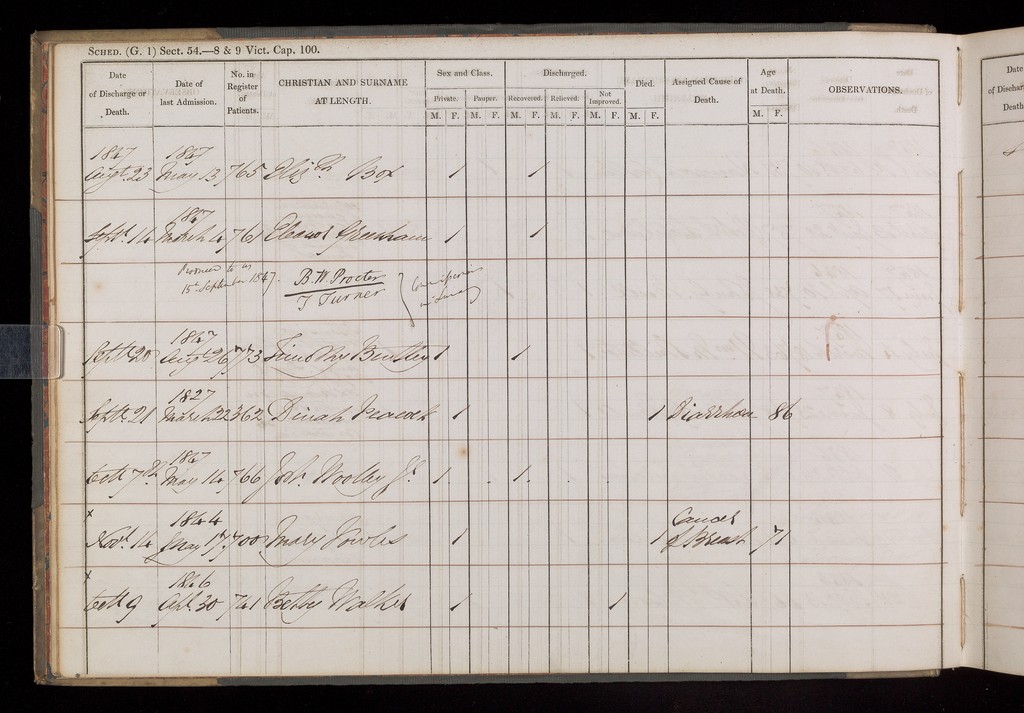 SCHED. (G. 1) Sect. 54.—8 & 9 Vict. Cap. 100.
Date of Discharge or Death.
Date of last Admission.
No. in Register of Patients.
CHRISTIAN AND SURNAME AT LENGTH.
Sex and Class.
Private. Pauper.
M. F. M. F.
Discharged.
Recovered. Relieved. Not Improved.
M. F. M. F. M. F.
Died.
M. F.
Assigned Cause of Death.
Age at Death.
M. F.
OBSERVATIONS.
1847 1847
Augt. 23 May 13 765 Elizth Box 1 1
1847
Septr. 14 March 4 761 Eleanor Greenham 1 1
15th September 1847. B. W. Procter
T Turner
Commissioners in Lunacy
1847
Septr. 20 Augt 26 773 Timothy Bentley 1 1
1827
Septr. 21 March 22 362 Dinah Peacock 1 1 Diarrhoea 86
1847
Octr 7th. May 14 766 Woolley Jr. 1 1
x 1844 Cancer
Novr. 14 May 17 700 Mary 1 1 of Breast 71
x 1846
Octr 9 Apl. 30 741 Betty Walker 1 1
Date
of Discharge
Death